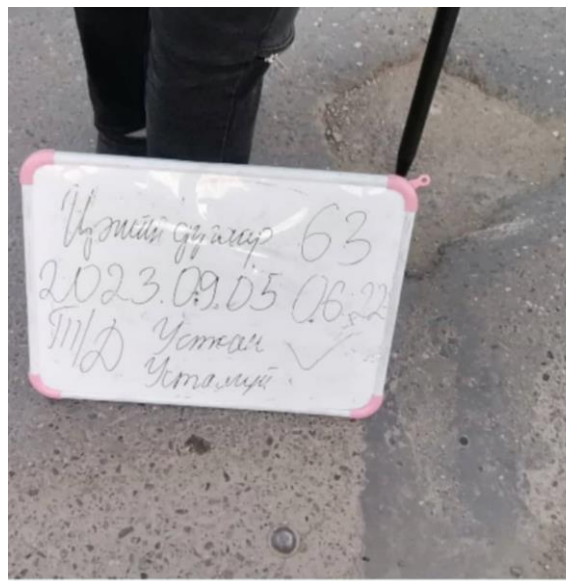 Цэгийн дугаар 63
2023.09.05 06:22
Т/Д Устгах ✓
Устгалгүй